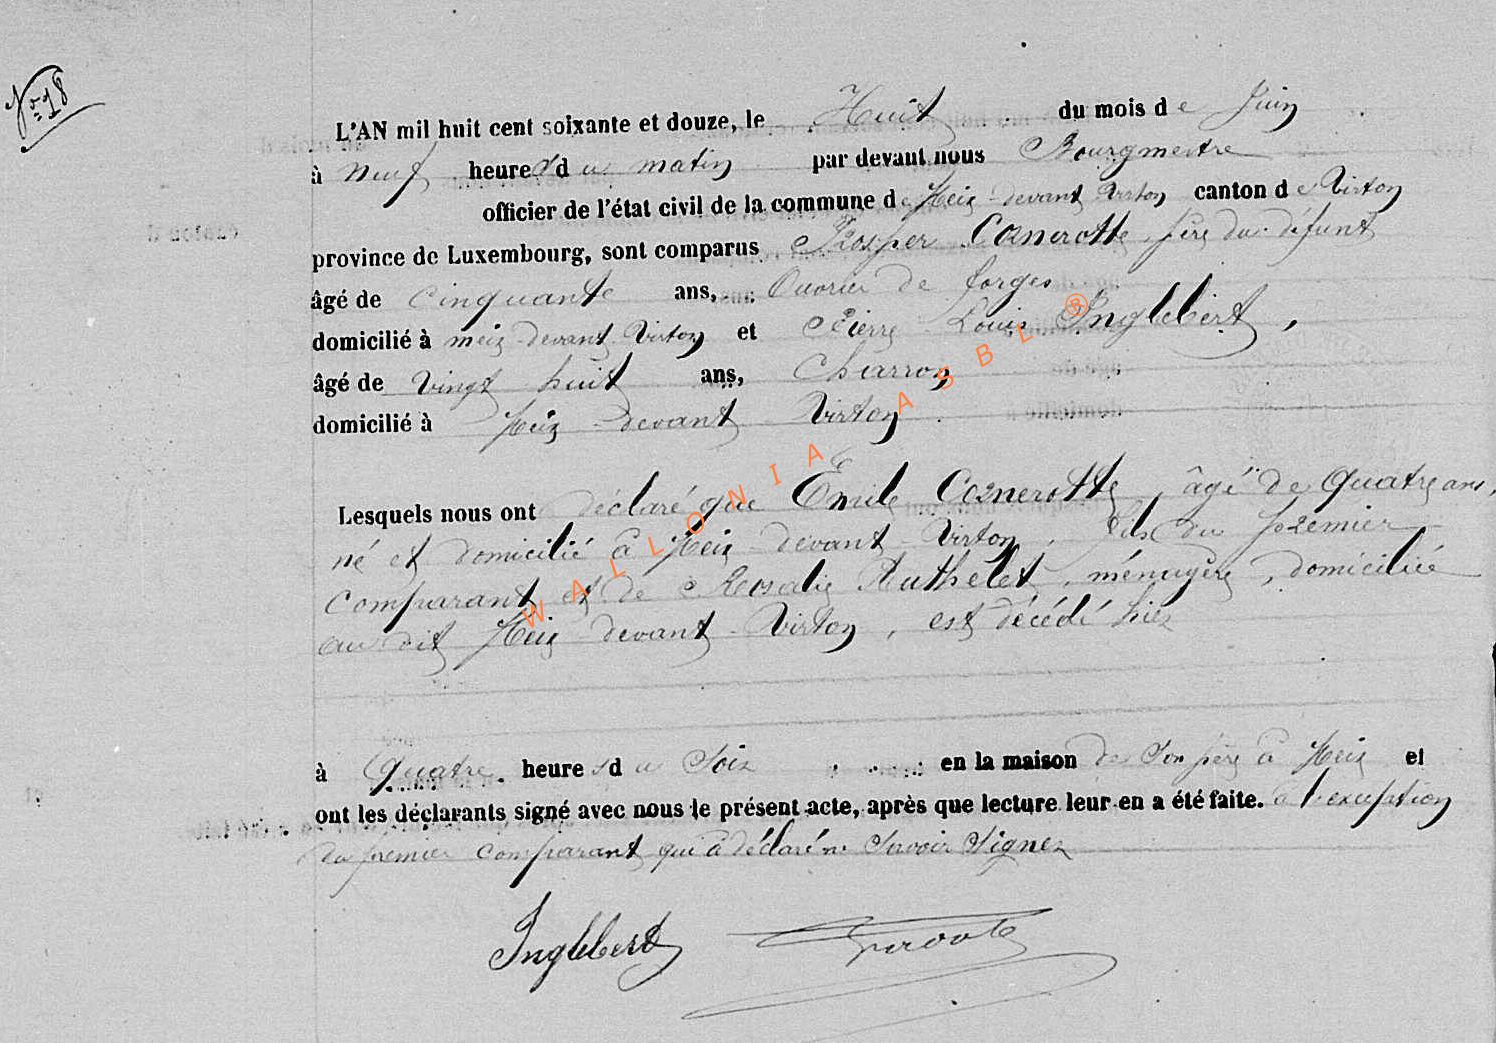 N° 18
L'AN mil huit cent soixante et douze, le Huit du mois de Juin
à neuf heures du matin par devant nous Bourgmestre
officier de l'état civil de la commune de Meix-devant Virton canton de Virton
province de Luxembourg, sont comparus Prosper Connerotte, père du défunt
âgé de cinquante ans, Ouvrier de forges
domicilié à meix-devant Virton et Pierre Louis Inglebert,
âgé de vingt huit ans, Charron
domicilié à Meix-devant Virton.
Lesquels nous ont déclaré que Emile Connerotte, âgé de quatre ans,
né et domicilié à Meix-devant-Virton, fils du premier
comparant et de Rosalie Authelet, ménagère, domiciliée
au dit Meix-devant-Virton, est décédé hier
à Quatre heures du Soir en la maison de Son père à Meix et
ont les déclarants signé avec nous le présent acte, après que lecture leur en a été faite. à l'exception
du premier comparant qui à déclaré ne Savoir Signer
Inglebert
WALLONIA ASBL ®